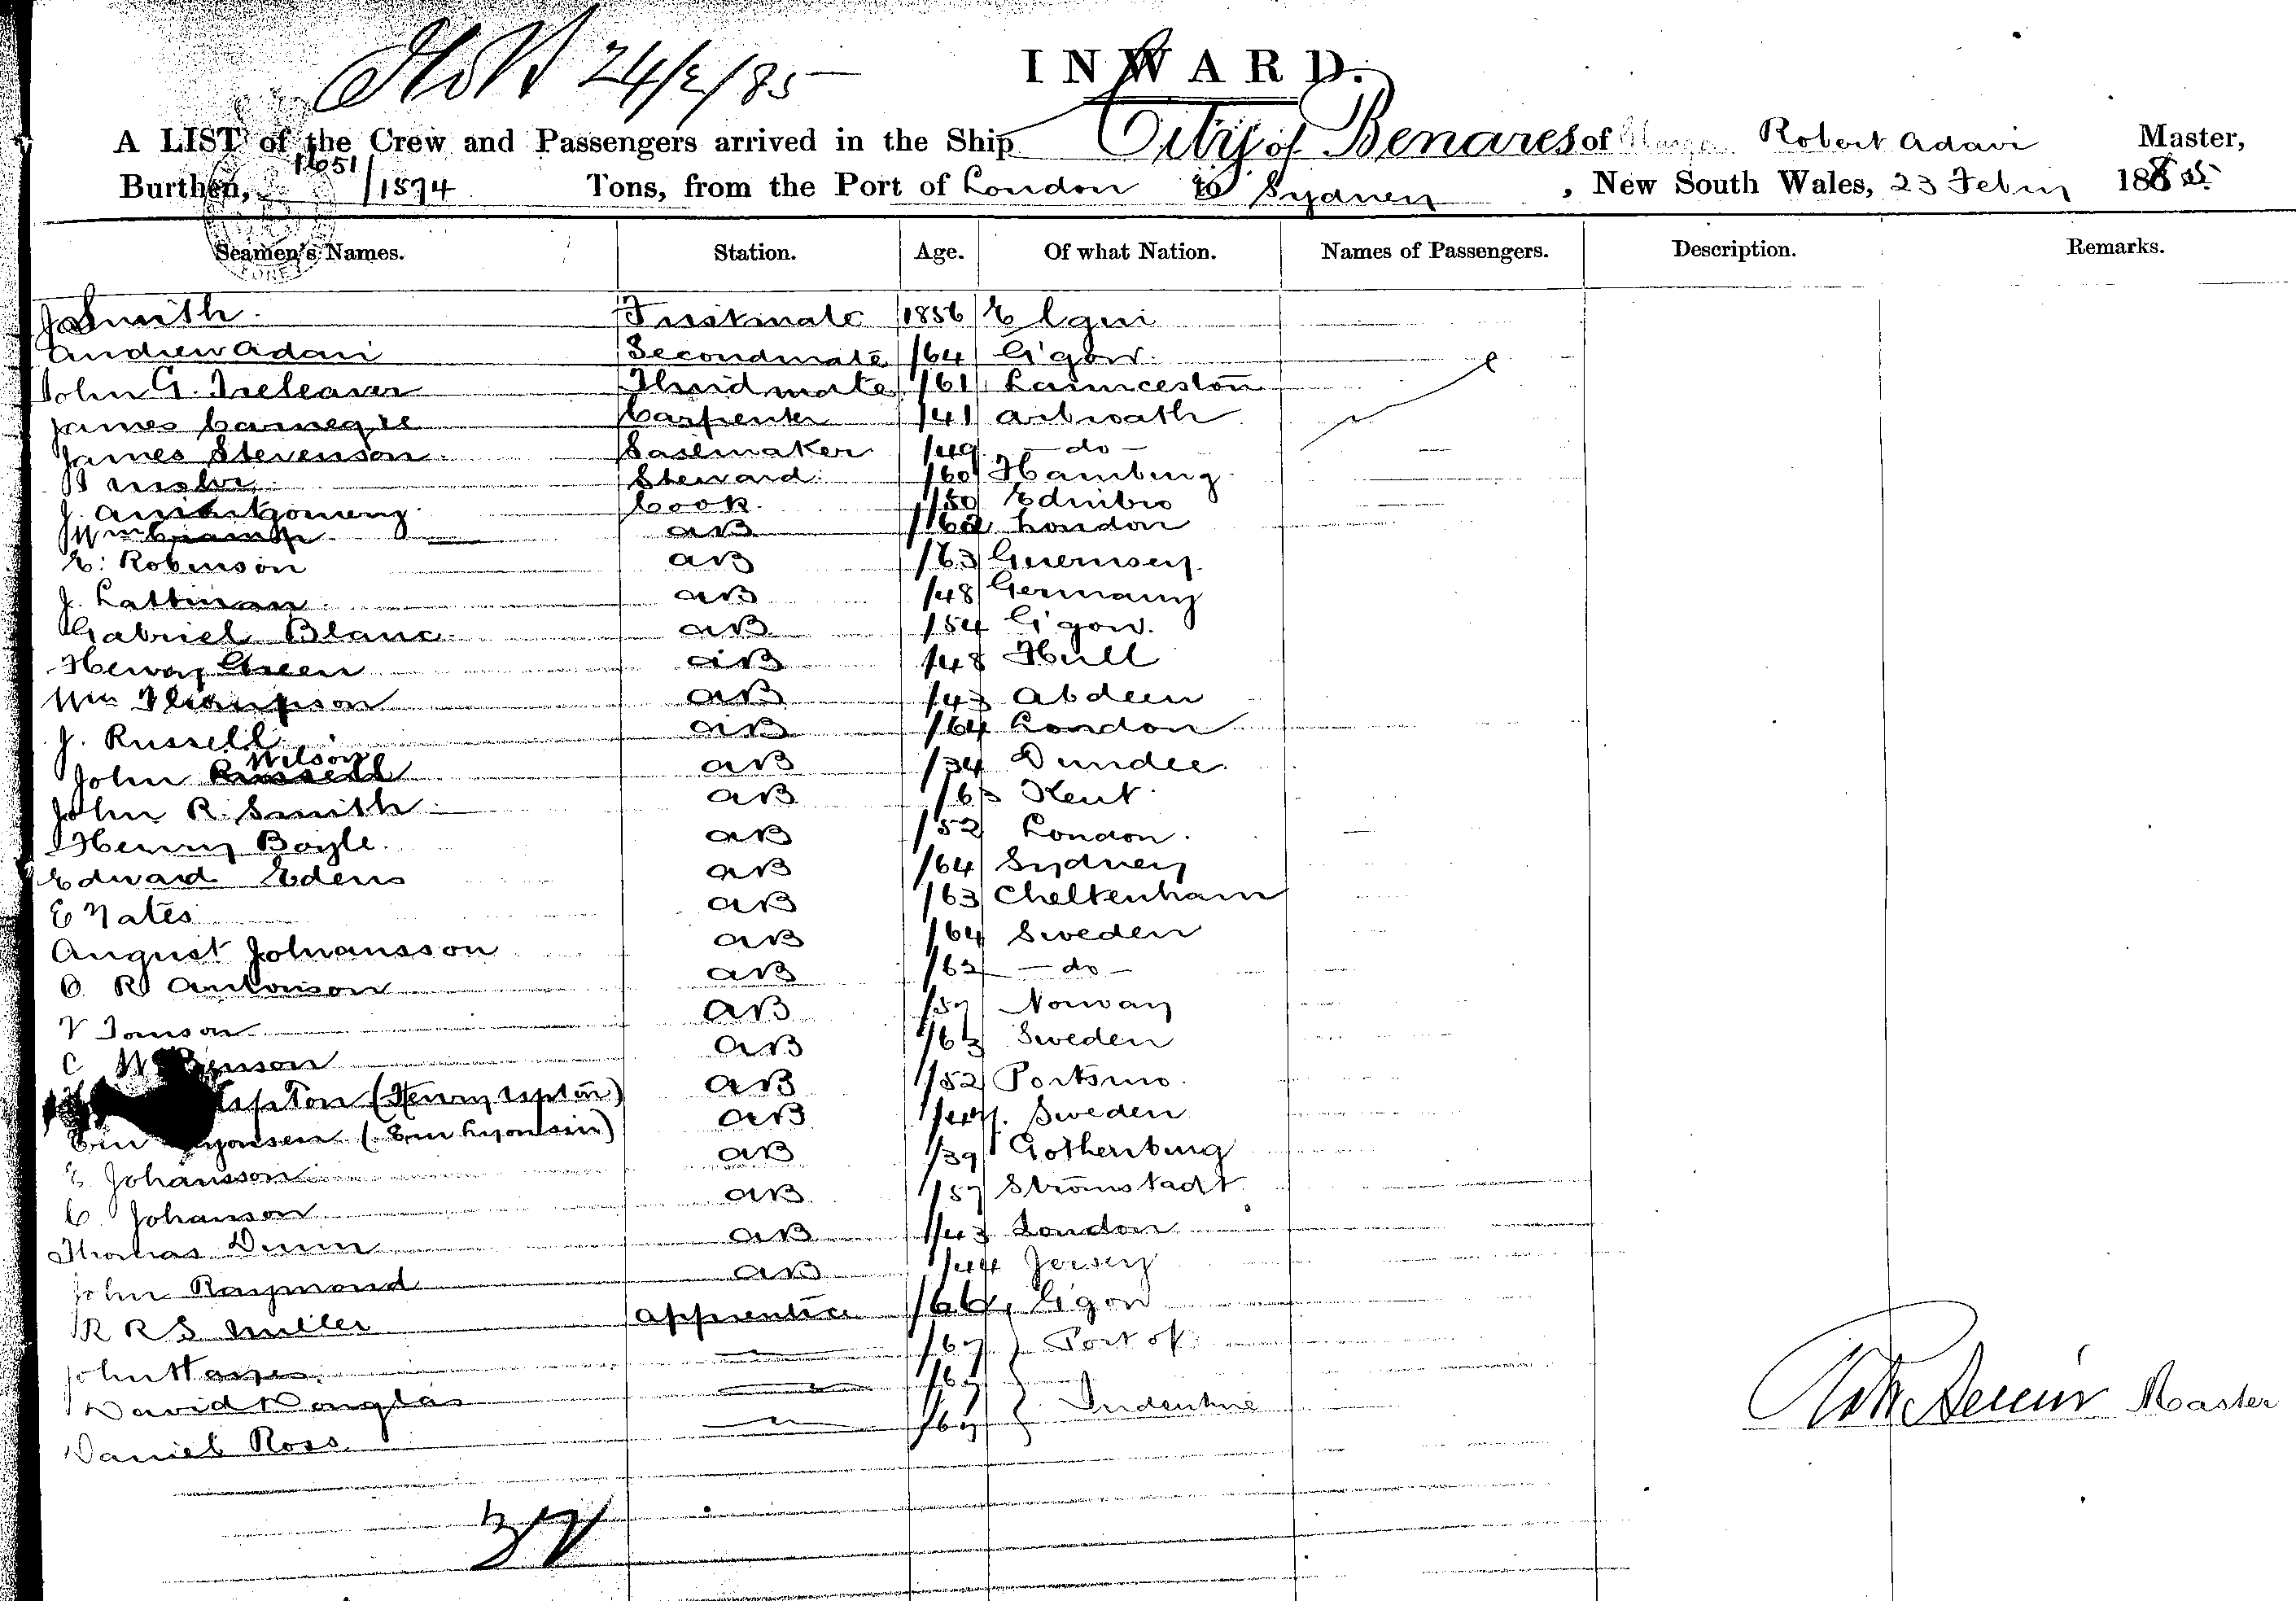 24/2/85
INWARD.
A LIST of the Crew and Passengers arrived in the Ship City of Benares of Robert Adair Master,
Burthen, 1651/1574 Tons, from the Port of London to Sydney, New South Wales, 23 Febry 1885
Seamen's Names. Station. Age. Of what Nation. Names of Passengers. Description. Remarks.
J Smith. First mate 1856 Elgin
Andrew Adair Second mate /64 G'gow.
John G. Treleaven Third mate /61 Launceston
James Carnegie Carpenter /41 Arbroath
James Stevenson Sailmaker /49 - do -
Steward. /60 Hamburg
J. A Montgomery Cook. /50 Edinbro
Wm AB /62 London
E. Robinson AB /63 Guernsey.
J. Lattman AB /48 Germany
Gabriel Blanc AB /54 G'gow.
Henry Green AB /48 Hull
Wm Thompson AB /43 Abdeen
J. Russell AB /64 London
John Wilson AB /34 Dundee.
John R. Smith AB /63 Kent
Henry Boyle. AB /52 London.
Edward Edens AB /64 Sydney
E Yates AB /63 Cheltenham
August Johansson AB /64 Sweden
O. R Antonson AB /62 - do -
Jonson AB /57 Norway
C W Benson AB /63 Sweden
Upton (Henry Upton) AB /52 Portsmo.
AB Sweden
E Johansson AB /39 Gothenburg
C. Johanson AB /57 Stromstadt
Thomas Dunn AB /43 London
John Raymond AB /44 Jersey
R R S Miller Apprentice /66 G'gow
John /67 Port of
David Douglas /67
Daniel Ross. /67 Indenture
Robt Adair Master
37